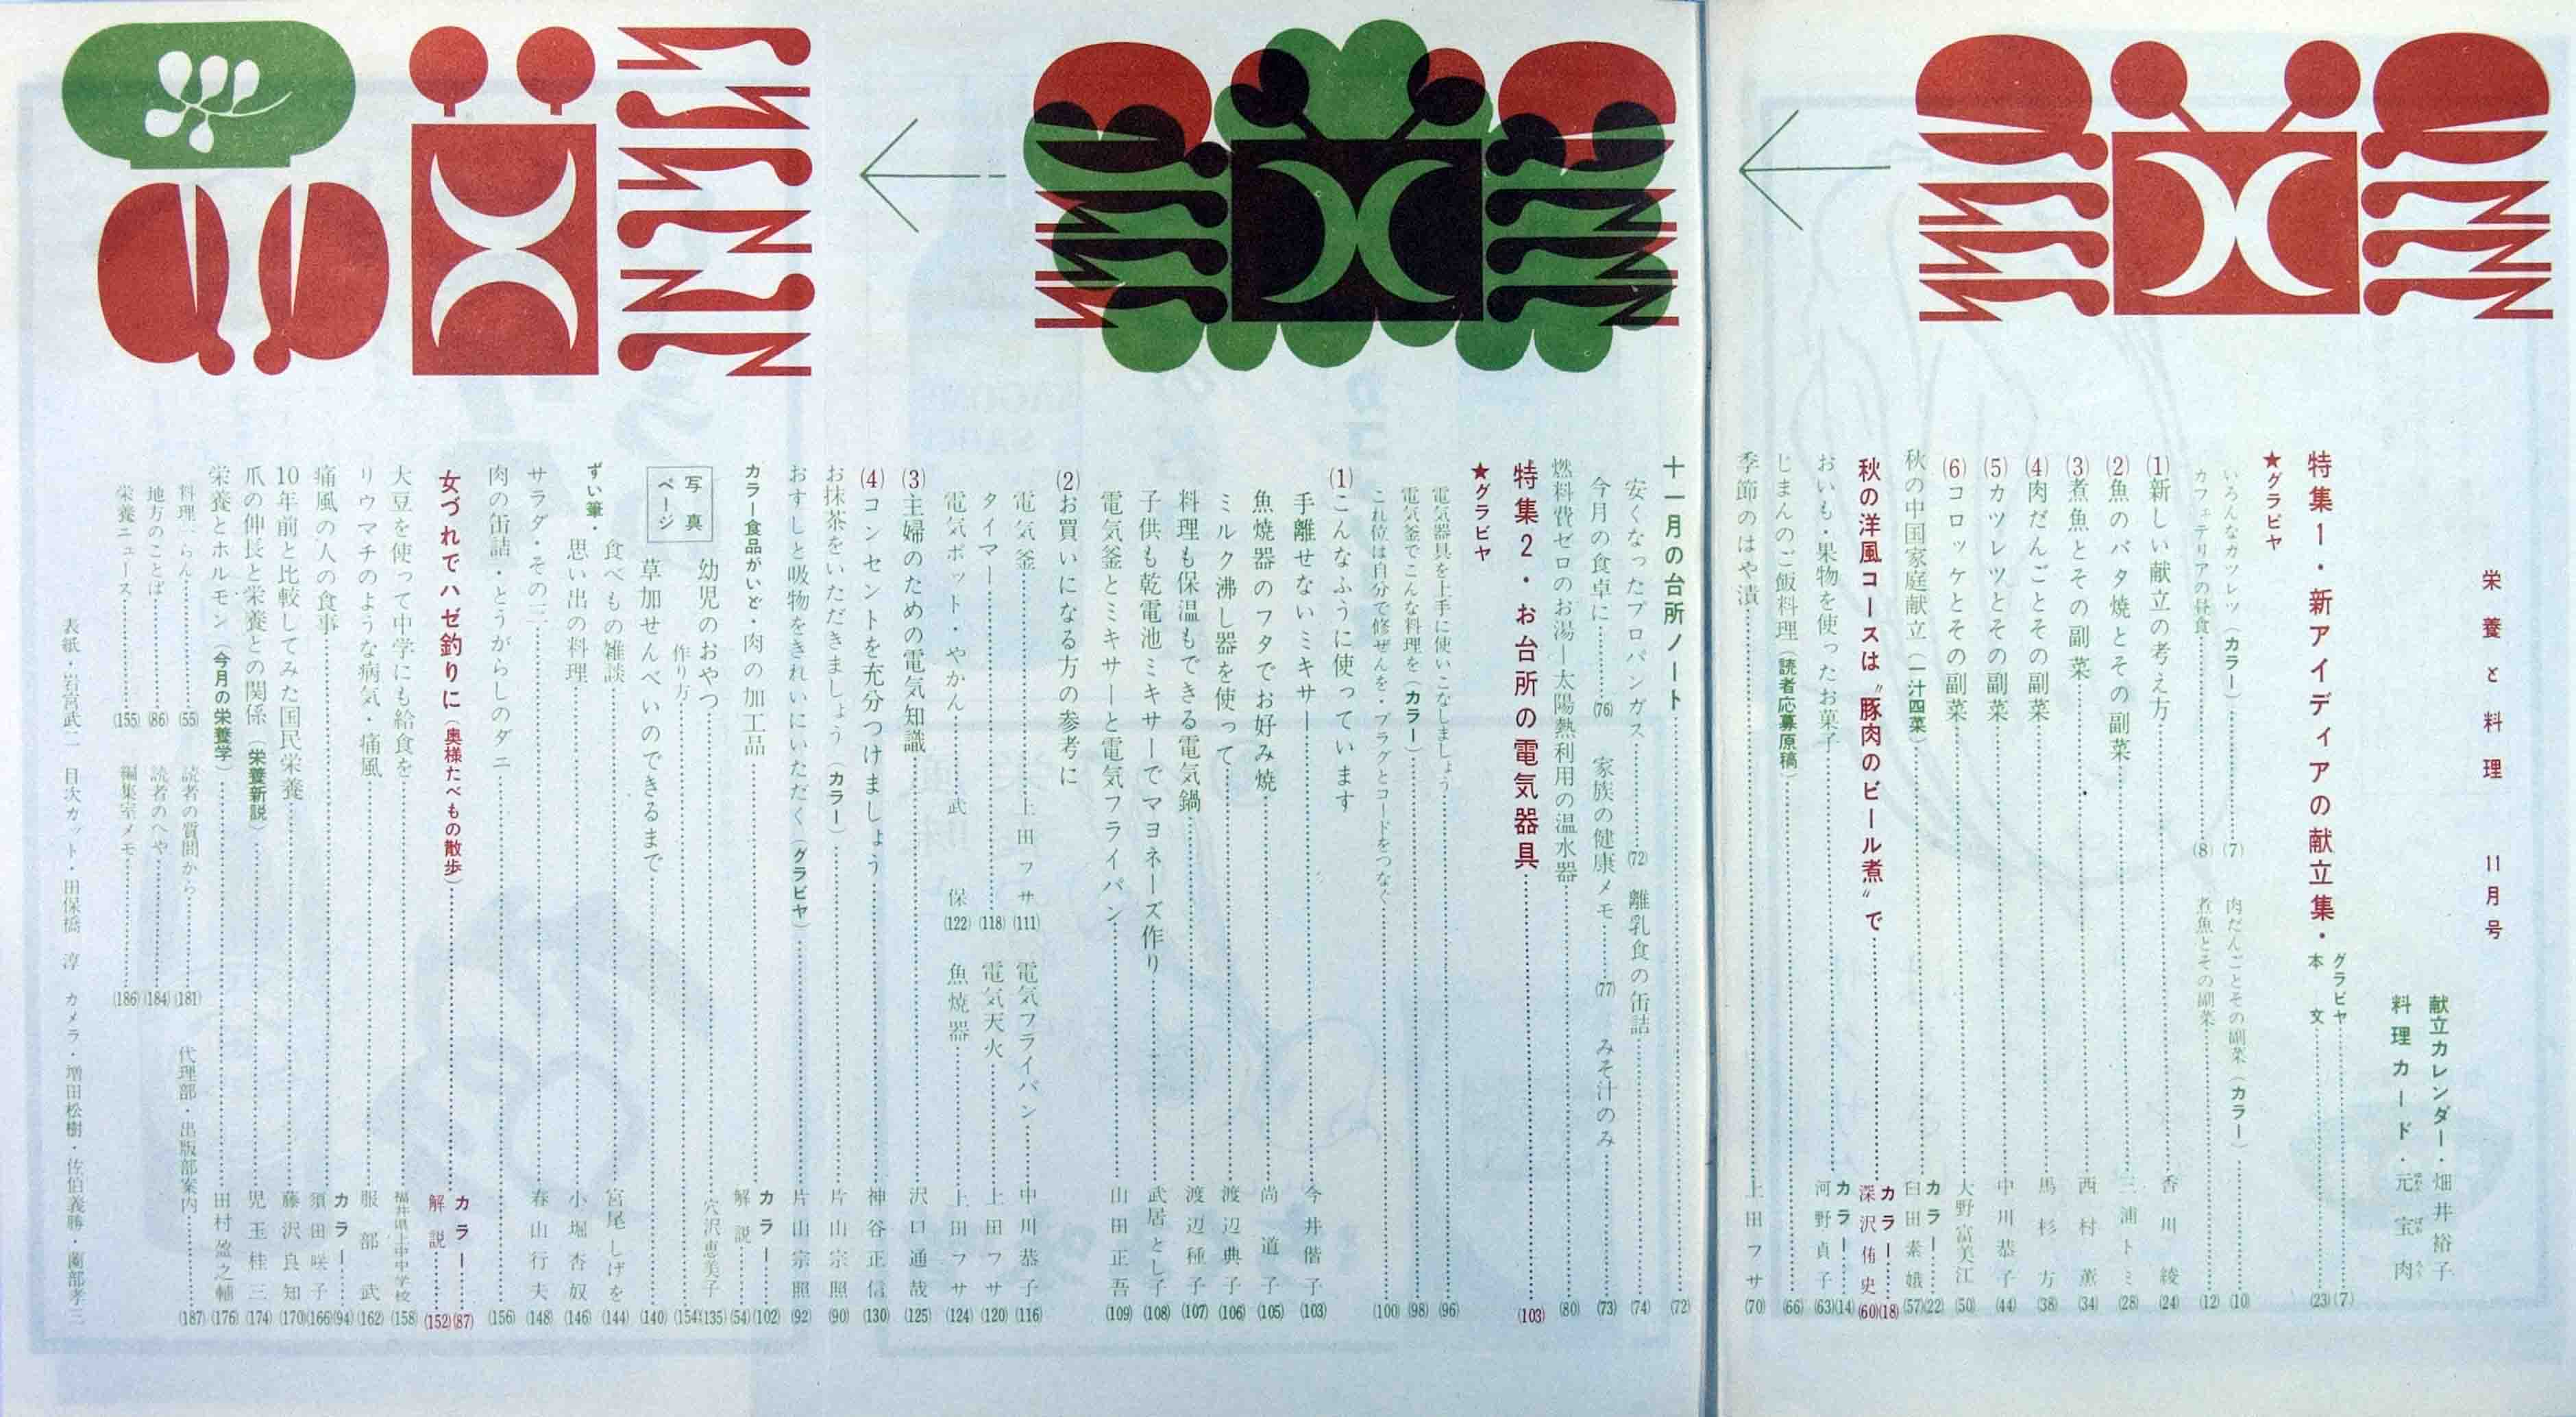 栄養と料理 11月号
献立カレンダー・畑井裕子
料理カード・元宝肉
特集1・新アイディアの献立集・グラビヤ……(7)
本文……(23)
★グラビヤ
いろんなカツレツ(カラー)……(7)
カフェテリアの昼食……(8)
肉だんごとその副菜(カラー)……(10)
煮魚とその副菜……(12)
(1)新しい献立の考え方……香川綾(24)
(2)魚のバタ焼とその副菜……三浦トミ(28)
(3)煮魚とその副菜……西村薫(34)
(4)肉だんごとその副菜……馬杉方(38)
(5)カツレツとその副菜……中川恭子(44)
(6)コロッケとその副菜……大野富美江(50)
秋の中国家庭献立(一汁四菜)……カラー……(22)
臼田素娥(57)
秋の洋風コースは〝豚肉のビール煮〟で……カラー……(18)
深沢侑史(60)
おいも・果物を使ったお菓子……カラー……(14)
河野貞子(63)
じまんのご飯料理(読者応募原稿)……(66)
季節のはや漬……上田フサ(70)
十一月の台所ノート……(72)
安くなったプロパンガス……(72)
離乳食の缶詰……(74)
今月の食卓に……(76)
家族の健康メモ……(77)
みそ汁のみ……(73)
燃料費ゼロのお湯―太陽熱利用の温水器……(80)
特集2・お台所の電気器具……(103)
★グラビヤ
電気器具を上手に使いこなしましょう……(96)
電気釜でこんな料理を(カラー)……(98)
これ位は自分で修ぜんを・プラグとコードをつなぐ……(100)
(1)こんなふうに使っています
手離せないミキサー……今井偕子(103)
魚焼器のフタでお好み焼……尚道子(105)
ミルク沸し器を使って……渡辺典子(106)
料理も保温もできる電気鍋……渡辺種子(107)
子供も乾電池ミキサーでマヨネーズ作り……武居とし子(108)
電気釜とミキサーと電気フライパン……山田正吾(109)
(2)お買いになる方の参考に
電気釜……上田フサ(111)
電気フライパン……中川恭子(116)
タイマー……(118)
電気天火……上田フサ(120)
電気ポット・やかん……武保(122)
魚焼器……上田フサ(124)
(3)主婦のための電気知識……沢口通哉(125)
(4)コンセントを充分つけましょう……神谷正信(130)
お抹茶をいただきましょう(カラー)……片山宗照(90)
おすしと吸物をきれいにいただく(グラビヤ)……片山宗照(92)
カラー食品がいど・肉の加工品……カラー……(102)
解説……(54)
写真ページ
幼児のおやつ……穴沢恵美子(135)
作り方……(154)
草加せんべいのできるまで……(140)
ずい筆・
食べもの雑談……宮尾しげを(144)
思い出の料理……小堀杏奴(146)
サラダ・その二……春山行夫(148)
肉の缶詰・とうがらしのダニ……(156)
女づれでハゼ釣りに(奥様たべもの散歩)……カラー……(87)
解説(152)
大豆を使って中学にも給食を……福井県上中中学校(158)
リウマチのような病気・痛風……服部武(162)
痛風の人の食事……カラー……(94)
須田咲子(166)
10年前と比較してみた国民栄養……藤沢良知(170)
爪の伸長と栄養との関係(栄養新説)……児玉桂三(174)
栄養とホルモン(今月の栄養学)……田村盈之輔(176)
料理一らん……(55)
読者の質問から……(181)
代理部・出版部案内……(187)
地方のことば……(86)
読者のへや……(184)
栄養ニュース……(155)
編集室メモ……(186)
表紙・岩宮武二 目次カット・田保橋淳 カメラ・増田松樹・佐伯義勝・薗部孝三